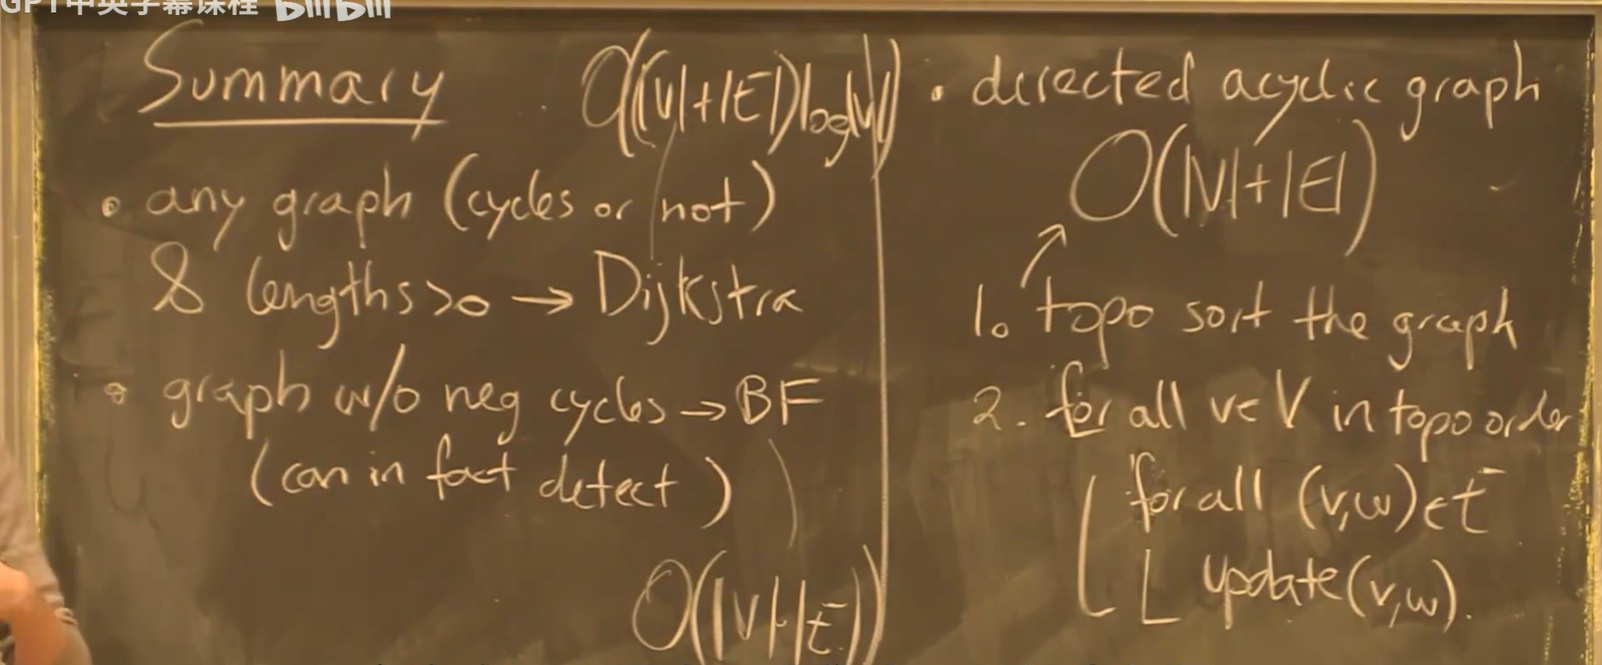 GPT中英字幕课程 bilibili
Summary
O((|V|+|E|)log|V|)
• any graph (cycles or not)
& lengths>0 → Dijkstra
• graph w/o neg cycles → BF
(can in fact detect)
O(|V|·|E|)
• directed acyclic graph
O(|V|+|E|)
1. topo sort the graph
2. for all v∈V in topo order
for all (v,w)∈E
update(v,w).